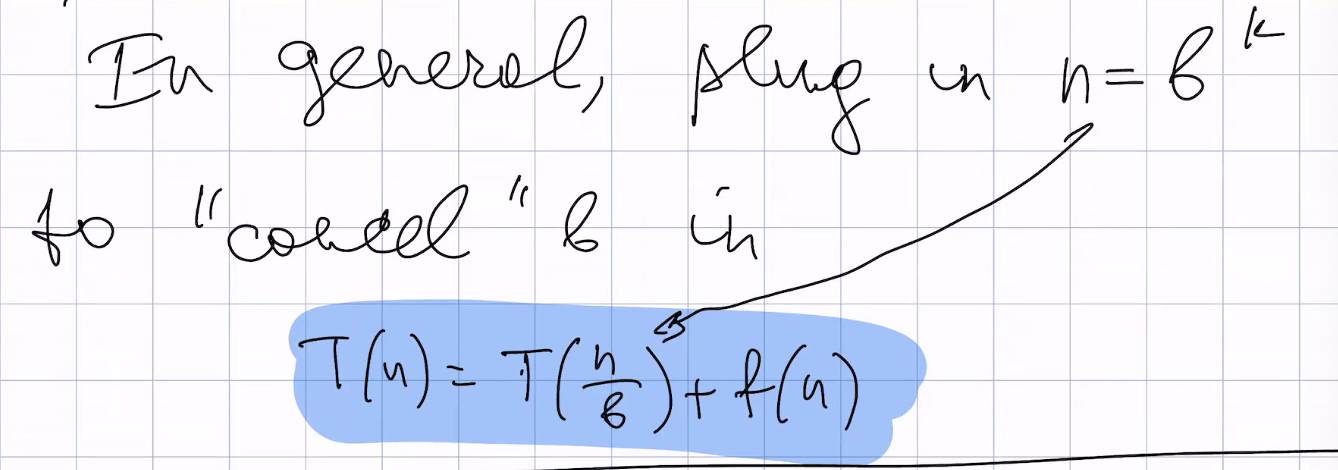 In general, plug in n = b^k
to "cancel" b in
T(n) = T(n/b) + f(n)